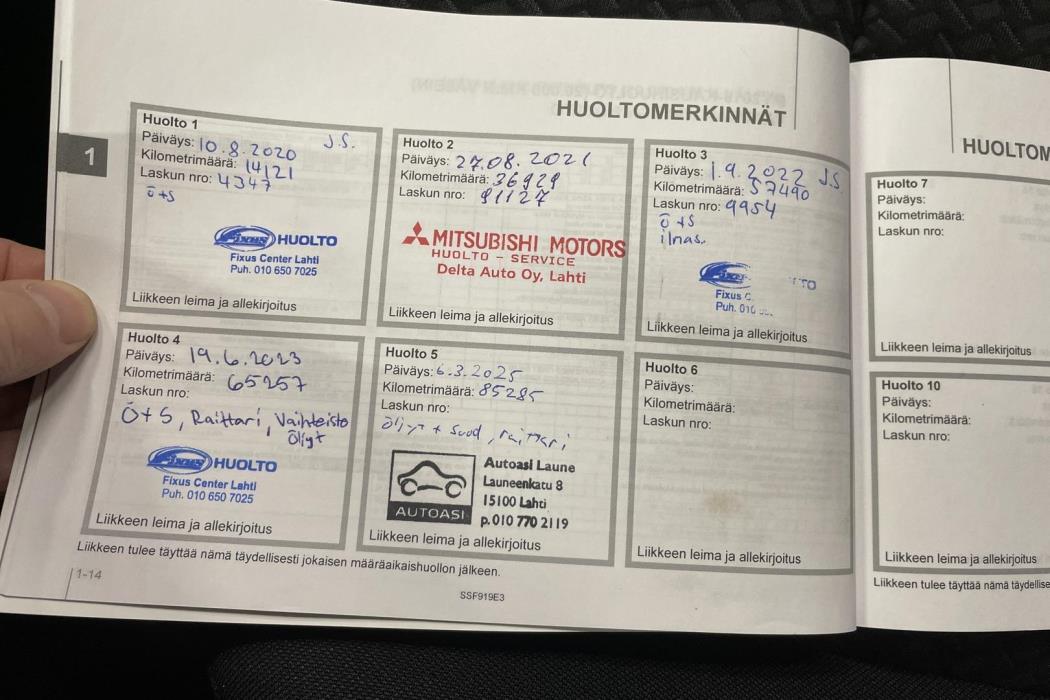 HUOLTOMERKINNÄT
1
Huolto 1
Päiväys: 10.8.2020 J.S.
Kilometrimäärä: 14121
Laskun nro: 4347
Ö+S
Fixus HUOLTO
Fixus Center Lahti
Puh. 010 650 7025
Liikkeen leima ja allekirjoitus
Huolto 2
Päiväys: 27.08.2021
Kilometrimäärä: 36929
Laskun nro: 91127
MITSUBISHI MOTORS
HUOLTO - SERVICE
Delta Auto Oy, Lahti
Liikkeen leima ja allekirjoitus
Huolto 3
Päiväys: 1.9.2022 J.S.
Kilometrimäärä: 57490
Laskun nro: 9954
Ö+S
ilnas.
Fixus
Fixus C
Puh. 010
Liikkeen leima ja allekirjoitus
Huolto 4
Päiväys: 19.6.2023
Kilometrimäärä: 65257
Laskun nro:
Ö+S, Raittari, Vaihteisto
öljyt
Fixus HUOLTO
Fixus Center Lahti
Puh. 010 650 7025
Liikkeen leima ja allekirjoitus
Huolto 5
Päiväys: 6.3.2025
Kilometrimäärä: 85285
Laskun nro:
öljyt + suod, raittari
AUTOASI
Autoasi Laune
Launeenkatu 8
15100 Lahti
p.010 770 2119
Liikkeen leima ja allekirjoitus
Huolto 6
Päiväys:
Kilometrimäärä:
Laskun nro:
Liikkeen leima ja allekirjoitus
Liikkeen tulee täyttää nämä täydellisesti jokaisen määräaikaishuollon jälkeen.
1-14
SSF919E3
HUOLTOM
Huolto 7
Päiväys:
Kilometrimäärä:
Laskun nro:
Liikkeen leima ja allekirjoitus
Huolto 10
Päiväys:
Kilometrimäärä:
Laskun nro:
Liikkeen leima ja allekirjoitus
Liikkeen tulee täyttää nämä täydellise